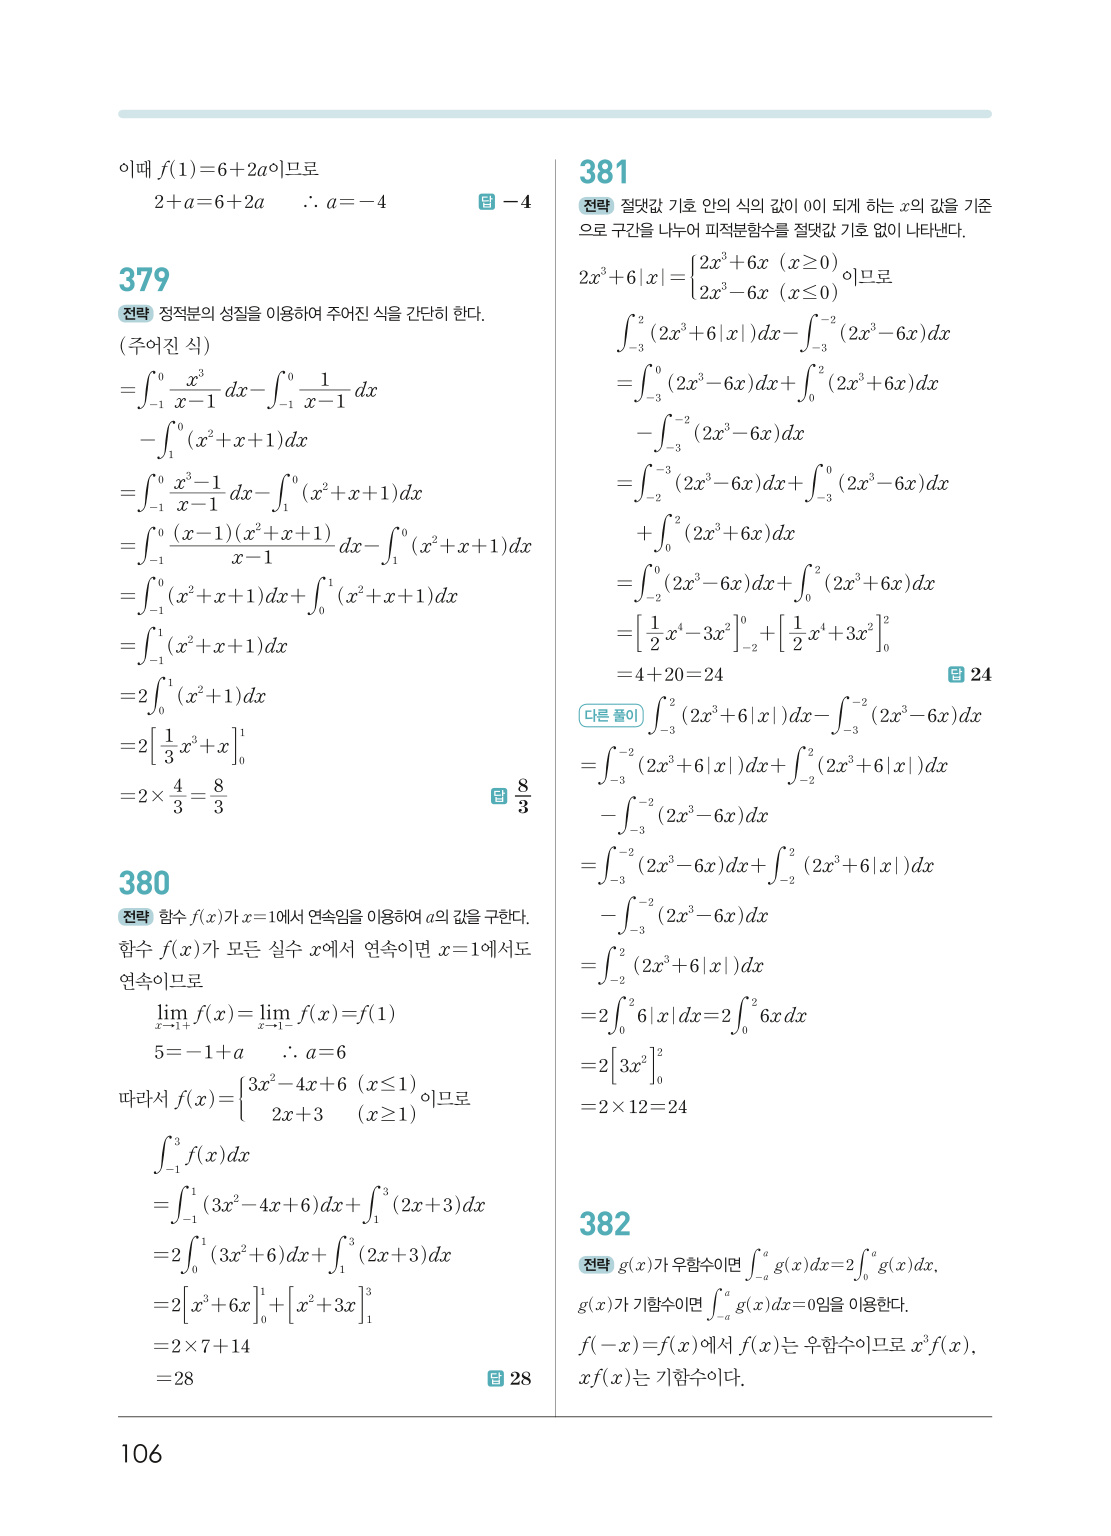 이때 f(1)=6+2a이므로
2+a=6+2a ∴ a=-4 답 -4
379
전략 정적분의 성질을 이용하여 주어진 식을 간단히 한다.
(주어진 식)
=∫_{-1}^{0} x³/(x-1) dx-∫_{-1}^{0} 1/(x-1) dx
-∫_{1}^{0} (x²+x+1)dx
=∫_{-1}^{0} (x³-1)/(x-1) dx-∫_{1}^{0} (x²+x+1)dx
=∫_{-1}^{0} (x-1)(x²+x+1)/(x-1) dx-∫_{1}^{0} (x²+x+1)dx
=∫_{-1}^{0} (x²+x+1)dx+∫_{0}^{1} (x²+x+1)dx
=∫_{-1}^{1} (x²+x+1)dx
=2∫_{0}^{1} (x²+1)dx
=2[1/3 x³+x]_{0}^{1}
=2×4/3=8/3 답 8/3
380
전략 함수 f(x)가 x=1에서 연속임을 이용하여 a의 값을 구한다.
함수 f(x)가 모든 실수 x에서 연속이면 x=1에서도
연속이므로
lim_{x→1+} f(x)=lim_{x→1-} f(x)=f(1)
5=-1+a ∴ a=6
따라서 f(x)={3x²-4x+6 (x≤1)
2x+3 (x≥1) 이므로
∫_{-1}^{3} f(x)dx
=∫_{-1}^{1} (3x²-4x+6)dx+∫_{1}^{3} (2x+3)dx
=2∫_{0}^{1} (3x²+6)dx+∫_{1}^{3} (2x+3)dx
=2[x³+6x]_{0}^{1}+[x²+3x]_{1}^{3}
=2×7+14
=28 답 28
381
전략 절댓값 기호 안의 식의 값이 0이 되게 하는 x의 값을 기준
으로 구간을 나누어 피적분함수를 절댓값 기호 없이 나타낸다.
2x³+6|x|={2x³+6x (x≥0)
2x³-6x (x≤0) 이므로
∫_{-3}^{2} (2x³+6|x|)dx-∫_{-3}^{-2} (2x³-6x)dx
=∫_{-3}^{0} (2x³-6x)dx+∫_{0}^{2} (2x³+6x)dx
-∫_{-3}^{-2} (2x³-6x)dx
=∫_{-2}^{-3} (2x³-6x)dx+∫_{-3}^{0} (2x³-6x)dx
+∫_{0}^{2} (2x³+6x)dx
=∫_{-2}^{0} (2x³-6x)dx+∫_{0}^{2} (2x³+6x)dx
=[1/2 x⁴-3x²]_{-2}^{0}+[1/2 x⁴+3x²]_{0}^{2}
=4+20=24 답 24
다른 풀이 ∫_{-3}^{2} (2x³+6|x|)dx-∫_{-3}^{-2} (2x³-6x)dx
=∫_{-3}^{-2} (2x³+6|x|)dx+∫_{-2}^{2} (2x³+6|x|)dx
-∫_{-3}^{-2} (2x³-6x)dx
=∫_{-3}^{-2} (2x³-6x)dx+∫_{-2}^{2} (2x³+6|x|)dx
-∫_{-3}^{-2} (2x³-6x)dx
=∫_{-2}^{2} (2x³+6|x|)dx
=2∫_{0}^{2} 6|x|dx=2∫_{0}^{2} 6xdx
=2[3x²]_{0}^{2}
=2×12=24
382
전략 g(x)가 우함수이면 ∫_{-a}^{a} g(x)dx=2∫_{0}^{a} g(x)dx,
g(x)가 기함수이면 ∫_{-a}^{a} g(x)dx=0임을 이용한다.
f(-x)=f(x)에서 f(x)는 우함수이므로 x³f(x),
xf(x)는 기함수이다.
106